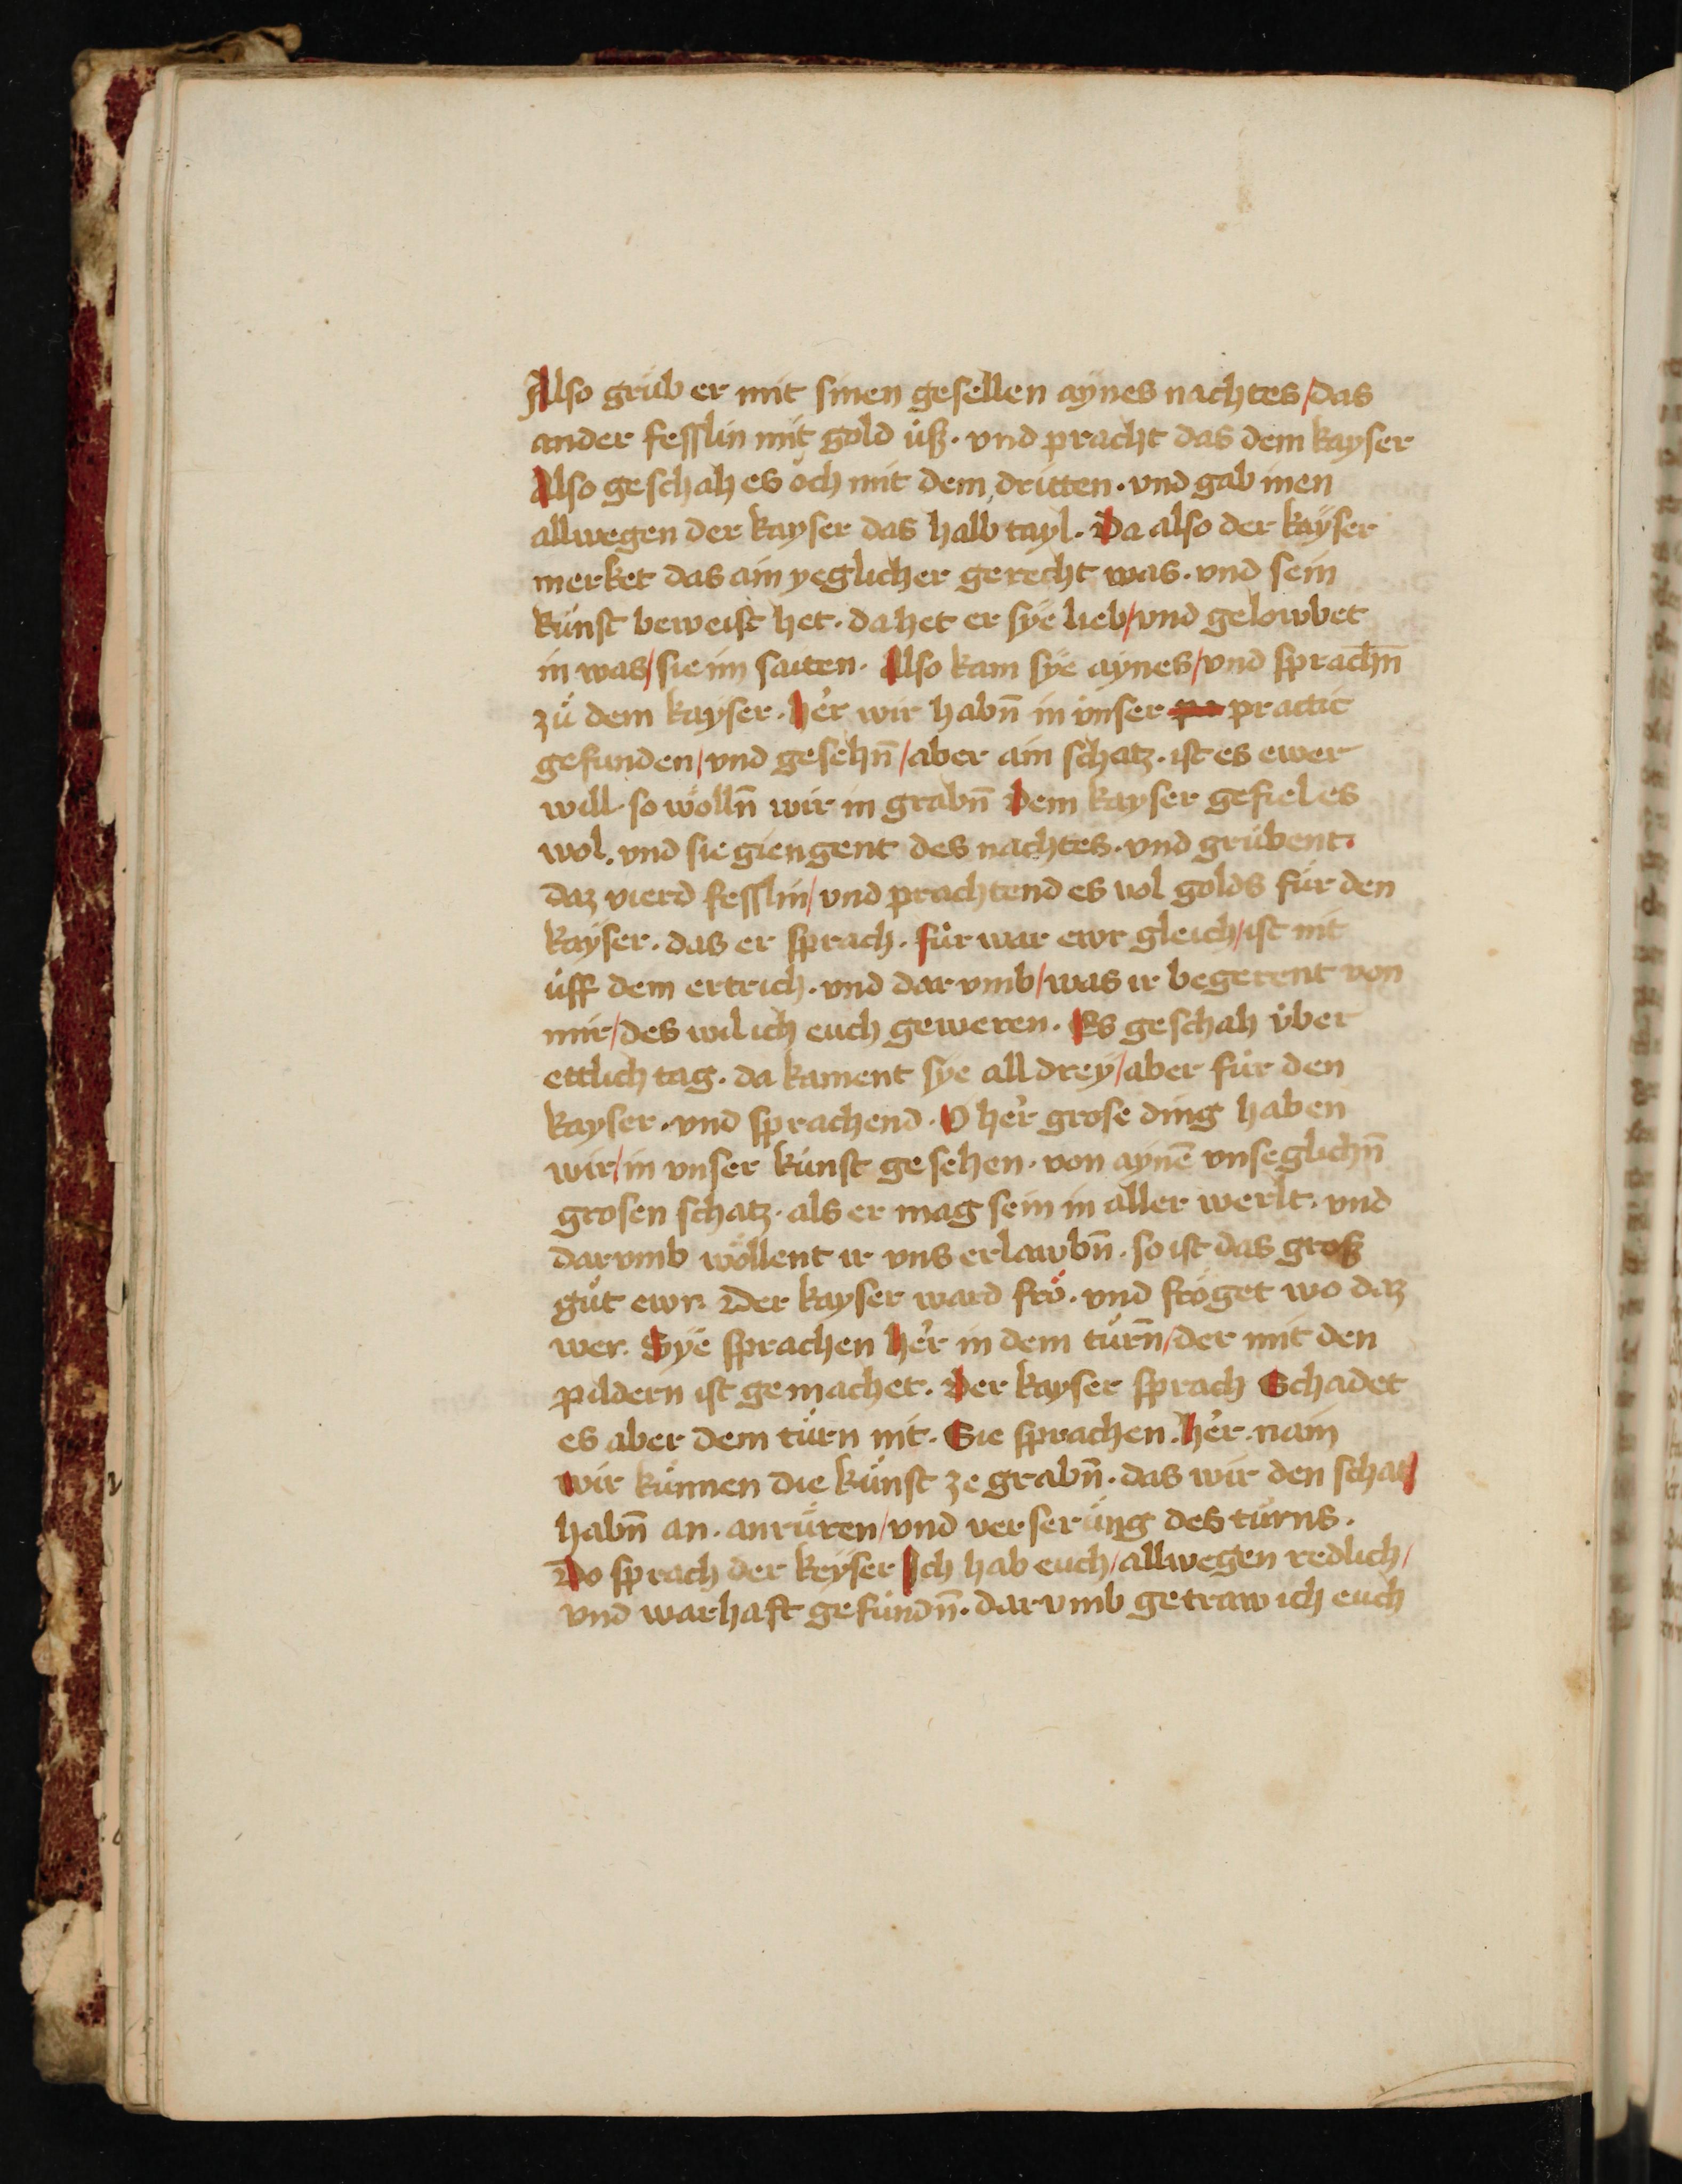 Also grůb er mit sinen gesellen aynes nachtes / das
ander fesslin mit gold ůß · vnd pracht das dem kayser
Also geschah es och mit dem dritten · vnd gab inen
allwegen der kayser das halb tayl · Da also der kaÿser
merket das ain yeglicher gerecht was · vnd sein
kunst beweist het · da het er sÿe lieb / vnd gelowbet
in was / sie im saiten · Also kam sÿe aÿnes / vnd sprachn̄
zů dem kaÿser · her wir habn̄ in vnser practic
gefunden / vnd gesehn̄ / aber ain schatz · ist es ewer
will · so wölln̄ wir in grabn̄ Dem kayser gefiel es
wol · vnd sie giengent des nachtes · vnd grůbent ·
daz vierd fesslin / vnd prachtend es vol golds für den
kaÿser · das er sprach · für war ewr gleich / ist nit
ůff dem ertrich · vnd dar vmb / was ir begerent von
mir / des wil ich euch geweren · Es geschah über
ettlich tag · da kament sÿe all dreÿ / aber für den
kayser · vnd sprachend · O her grose ding haben
wir / in vnser kunst gesehen · von aynē vnseglichn̄
grosen schatz · als er mag sein in aller werlt · vnd
dar vmb wöllent ir vns erlawbn̄ · so ist das groß
gůt ewr · Der kayser ward fro · vnd froget wo daz
wer · Sÿe sprachen her in dem turn̄ / der mit den
pildern ist gemachet · Der kayser sprach Schadet
es aber dem turn nit · Sie sprachen · her · nain
wir kunnen die kunst ze grabn̄ · das wir den schatz
habn̄ an · anrůren / vnd verserung des turns ·
Do sprach der keÿser Ich hab euch / allwegen redlich /
vnd warhaft gefundn̄ · dar vmb getraw ich euch